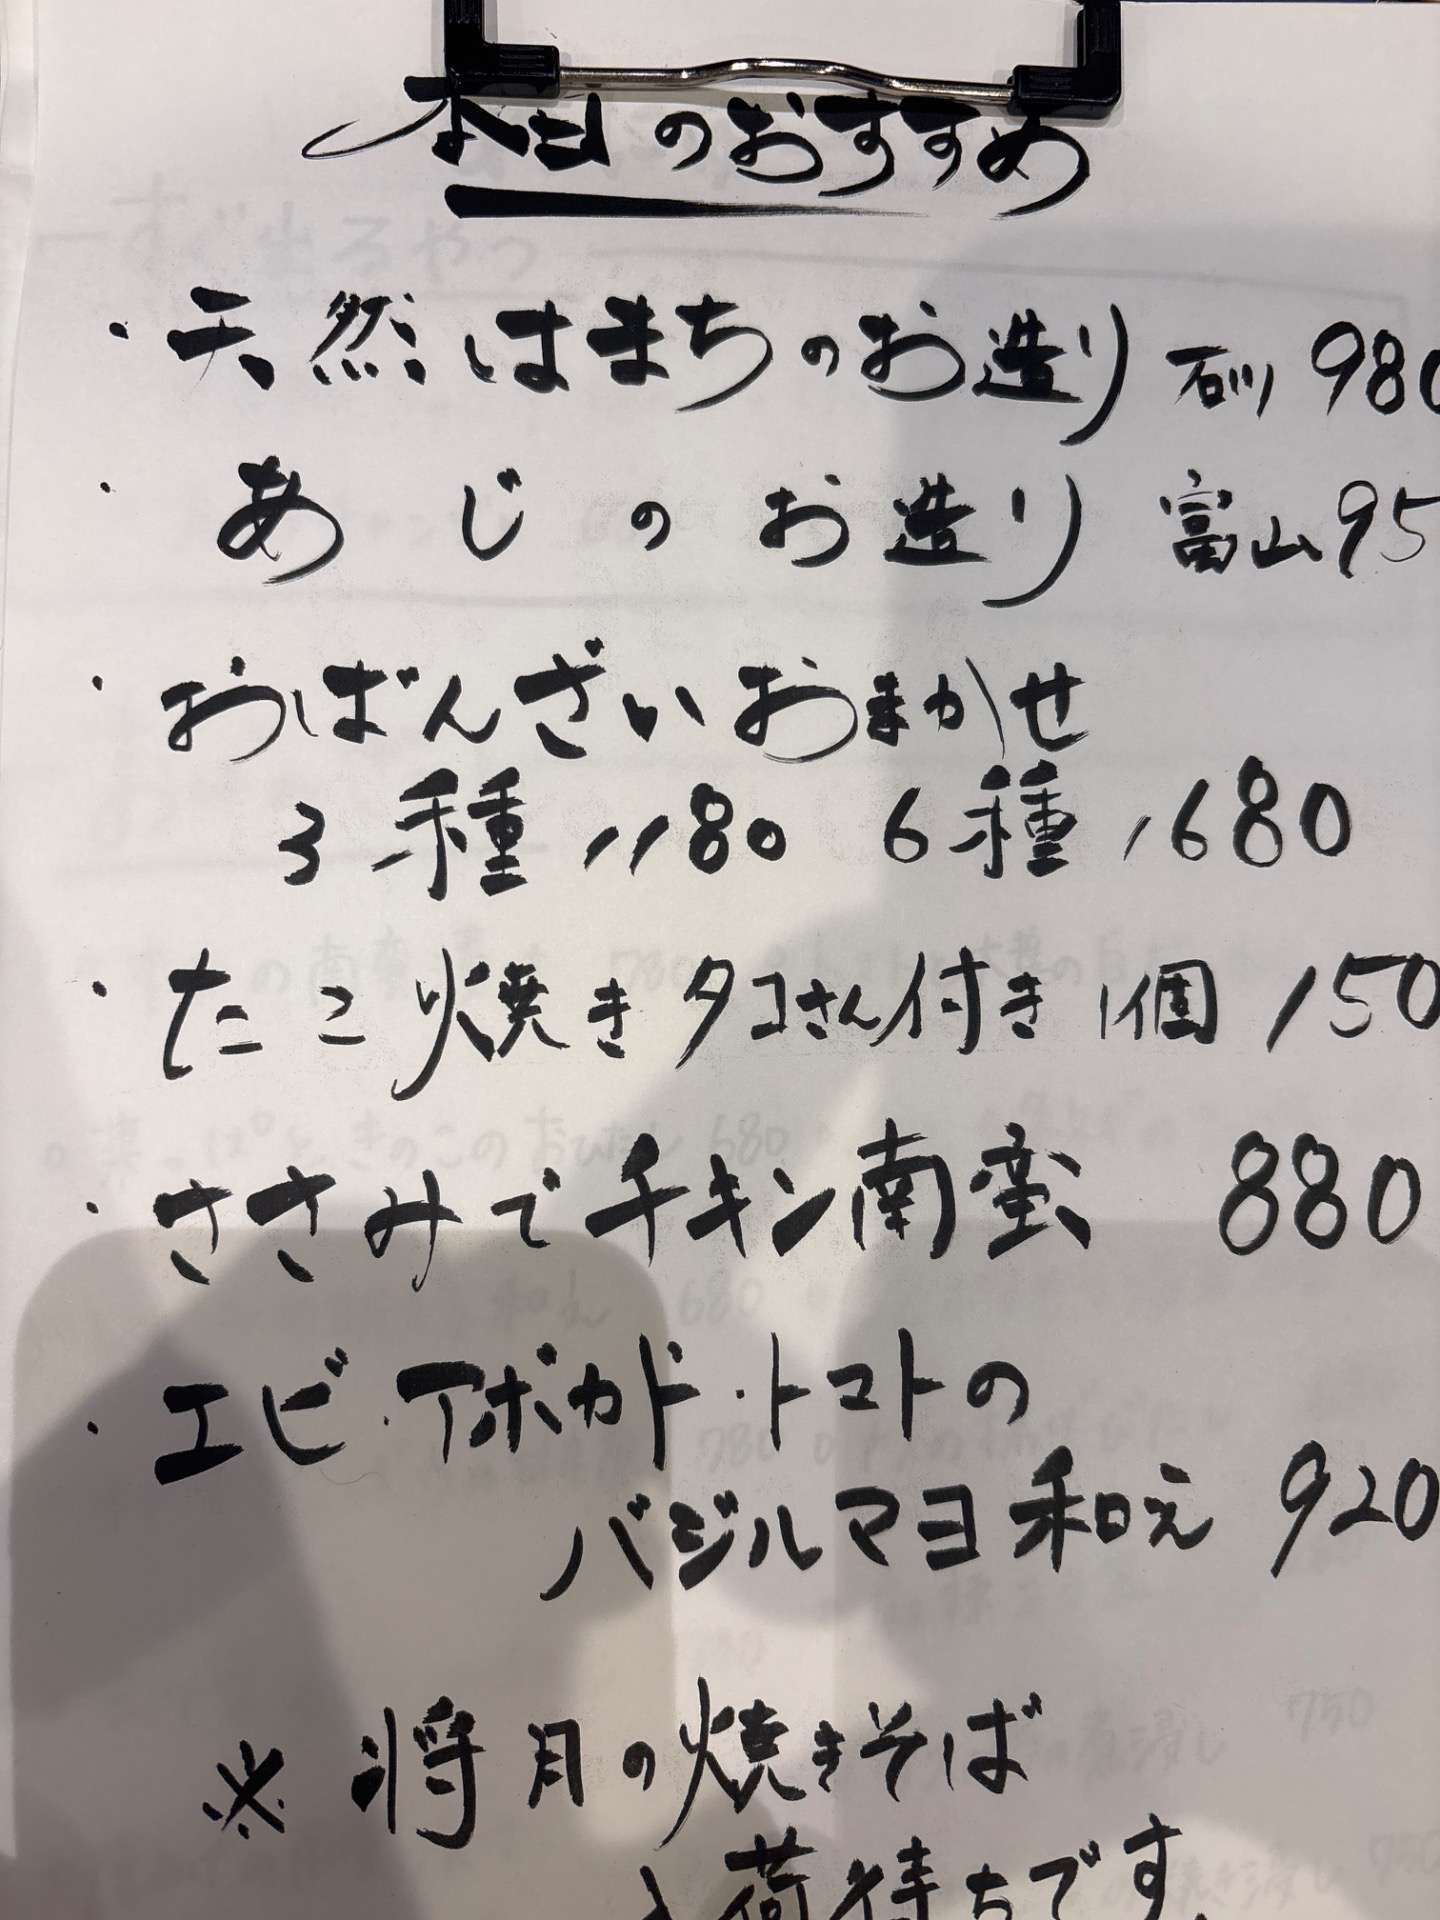 本日のおすすめ
・天然はまちのお造り 石川 980
・あじのお造り 富山 95
・おばんざいおまかせ
3種 1180 6種 1680
・たこ焼きタコさん付き 1個 150
・ささみでチキン南蛮 880
・エビ・アボカド・トマトの
バジルマヨ和え 920
※ 将月の焼きそば
入荷待ちです。